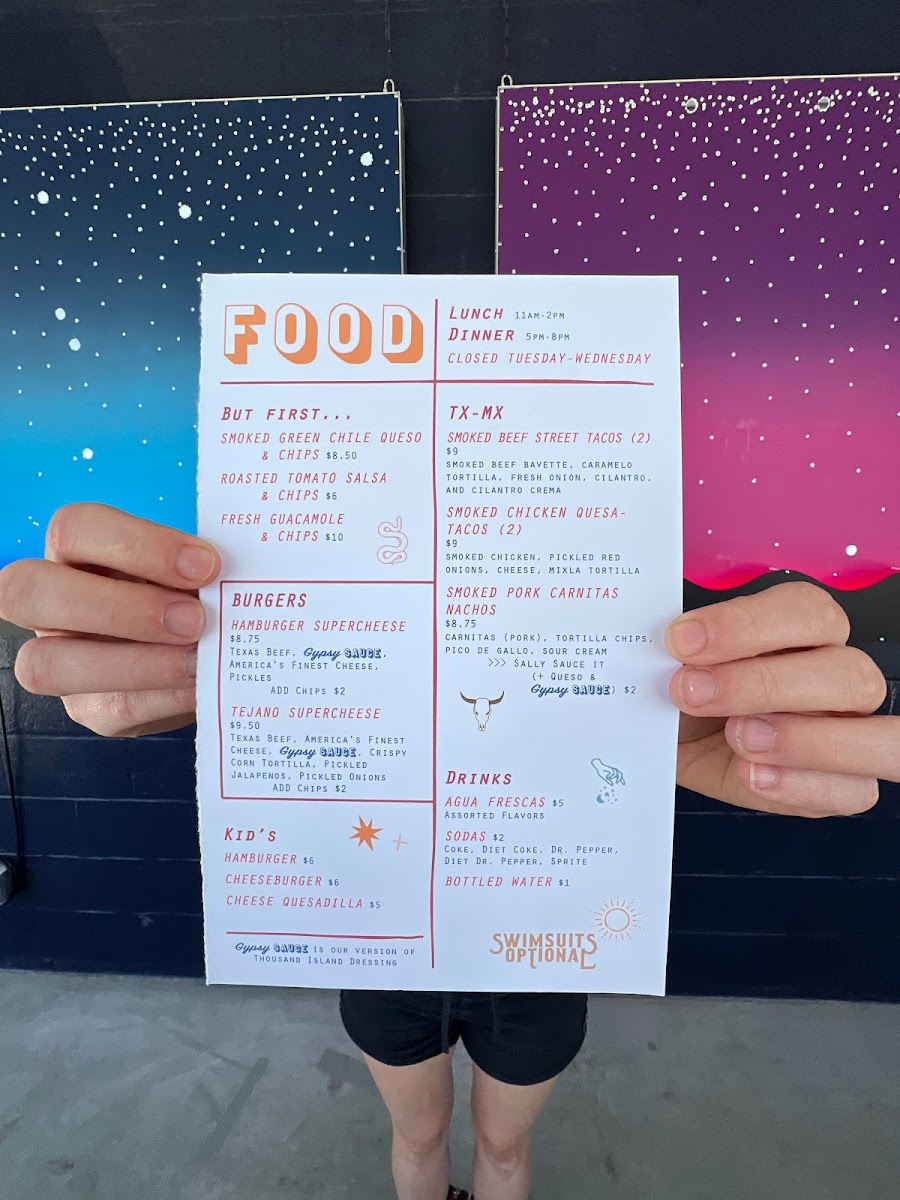 FOOD
LUNCH 11AM-2PM
DINNER 5PM-8PM
CLOSED TUESDAY-WEDNESDAY
BUT FIRST...
SMOKED GREEN CHILE QUESO
& CHIPS $8.50
ROASTED TOMATO SALSA
& CHIPS $6
FRESH GUACAMOLE
& CHIPS $10
BURGERS
HAMBURGER SUPERCHEESE
$8.75
TEXAS BEEF, Gypsy SAUCE,
AMERICA'S FINEST CHEESE,
PICKLES
ADD CHIPS $2
TEJANO SUPERCHEESE
$9.50
TEXAS BEEF, AMERICA'S FINEST
CHEESE, Gypsy SAUCE, CRISPY
CORN TORTILLA, PICKLED
JALAPENOS, PICKLED ONIONS
ADD CHIPS $2
KID'S
HAMBURGER $6
CHEESEBURGER $6
CHEESE QUESADILLA $5
Gypsy SAUCE IS OUR VERSION OF
THOUSAND ISLAND DRESSING
TX-MX
SMOKED BEEF STREET TACOS (2)
$9
SMOKED BEEF BAVETTE, CARAMELO
TORTILLA, FRESH ONION, CILANTRO,
AND CILANTRO CREMA
SMOKED CHICKEN QUESA-
TACOS (2)
$9
SMOKED CHICKEN, PICKLED RED
ONIONS, CHEESE, MIXLA TORTILLA
SMOKED PORK CARNITAS
NACHOS
$8.75
CARNITAS (PORK), TORTILLA CHIPS,
PICO DE GALLO, SOUR CREAM
>>> SALLY SAUCE IT
(+ QUESO &
Gypsy SAUCE) $2
DRINKS
AGUA FRESCAS $5
ASSORTED FLAVORS
SODAS $2
COKE, DIET COKE, DR. PEPPER,
DIET DR. PEPPER, SPRITE
BOTTLED WATER $1
SWIMSUITS
OPTIONAL